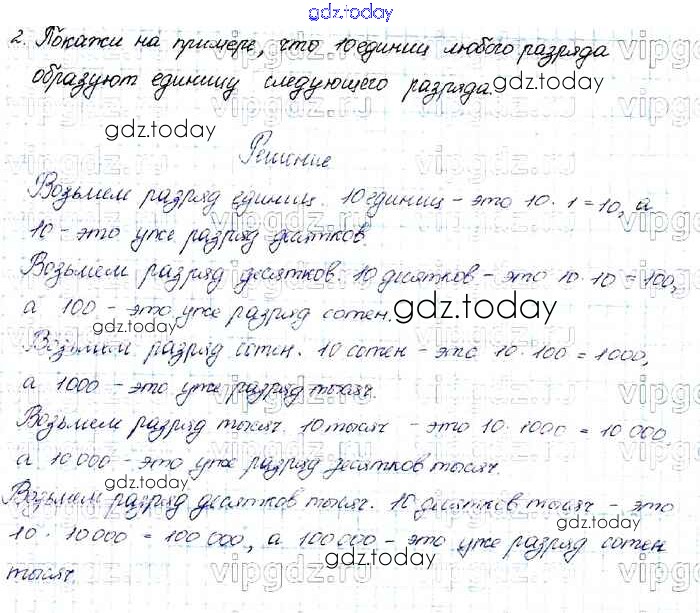 gdz.today
2. Покажи на примере, что 10 единиц любого разряда
образуют единицу следующего разряда.
gdz.today
gdz.today
Решение
Возьмем разряд единиц. 10 единиц - это 10 · 1 = 10, а
10 - это уже разряд десятков.
Возьмем разряд десятков. 10 десятков - это 10 · 10 = 100,
а 100 - это уже разряд сотен.
gdz.today
gdz.today
Возьмем разряд сотен. 10 сотен - это 10 · 100 = 1000,
а 1000 - это уже разряд тысяч.
gdz.today
Возьмем разряд тысяч. 10 тысяч - это 10 · 1000 = 10 000
а 10 000 - это уже разряд десятков тысяч.
gdz.today
Возьмем разряд десятков тысяч. 10 десятков тысяч - это
gdz.today
10 · 10 000 = 100 000, а 100 000 - это уже разряд сотен
тысяч.